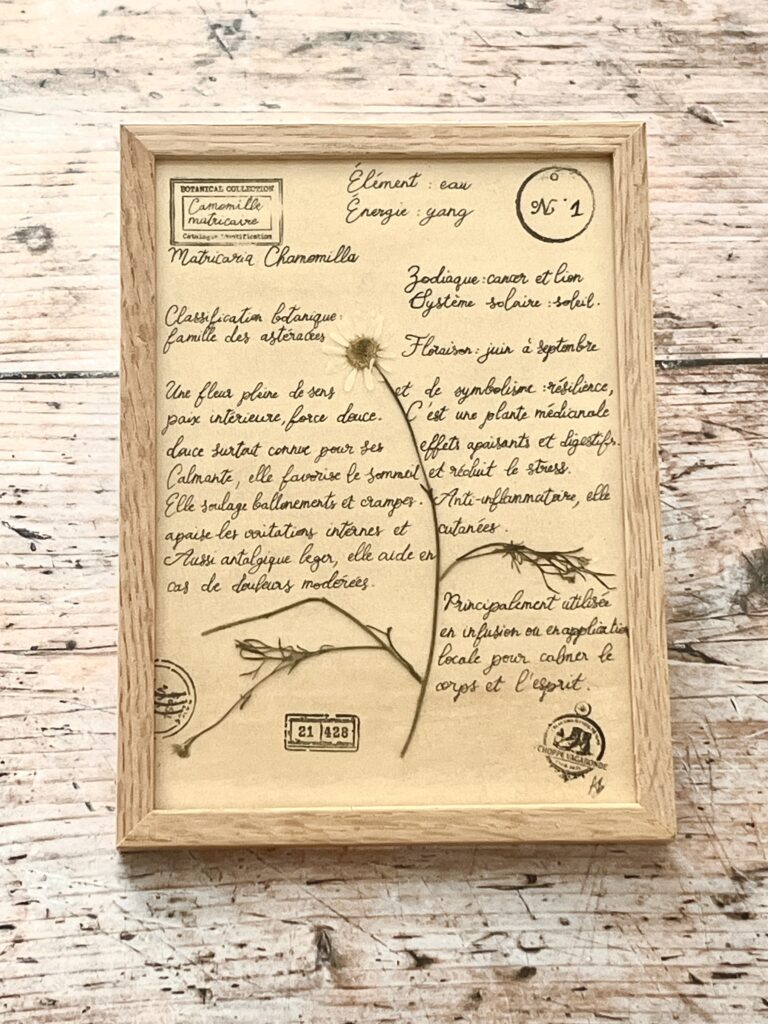 BOTANICAL COLLECTION
Camomille
matricaire
Catalogue Identification
Élément : eau
Énergie : yang
N° 1
Matricaria Chamomilla
Zodiaque : cancer et lion
Système solaire : soleil.
Classification botanique :
famille des astéracées
Floraison : juin à septembre
Une fleur pleine de sens et de symbolisme : résilience,
paix intérieure, force douce. C'est une plante médicinale
douce surtout connue pour ses effets apaisants et digestifs.
Calmante, elle favorise le sommeil et réduit le stress.
Elle soulage ballonements et crampes. Anti-inflammatoire, elle
apaise les irritations internes et cutanées.
Aussi antalgique leger, elle aide en
cas de douleurs modérées.
Principalement utilisée
en infusion ou en application
locale pour calmer le
corps et l'esprit.
21 428
CHOPPE VAGABONDE